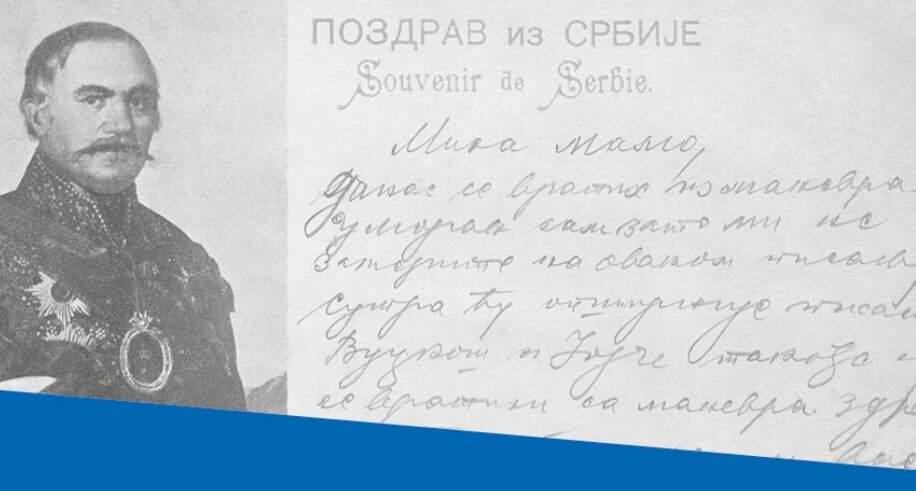 ПОЗДРАВ из СРБИЈЕ
Souvenir de Serbie.
Мила мамо,
Данас се вратих са маневра
уморан сам зато ми не
замерите на оваком писа
сутра ћу опширније писа
Вуцкош и Јојче такође
се вратили са маневра здр